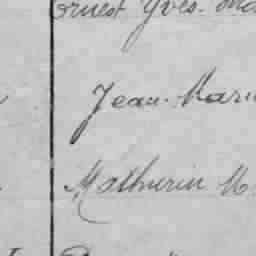 Ernest Yves
Jean-Marie
Mathurin M